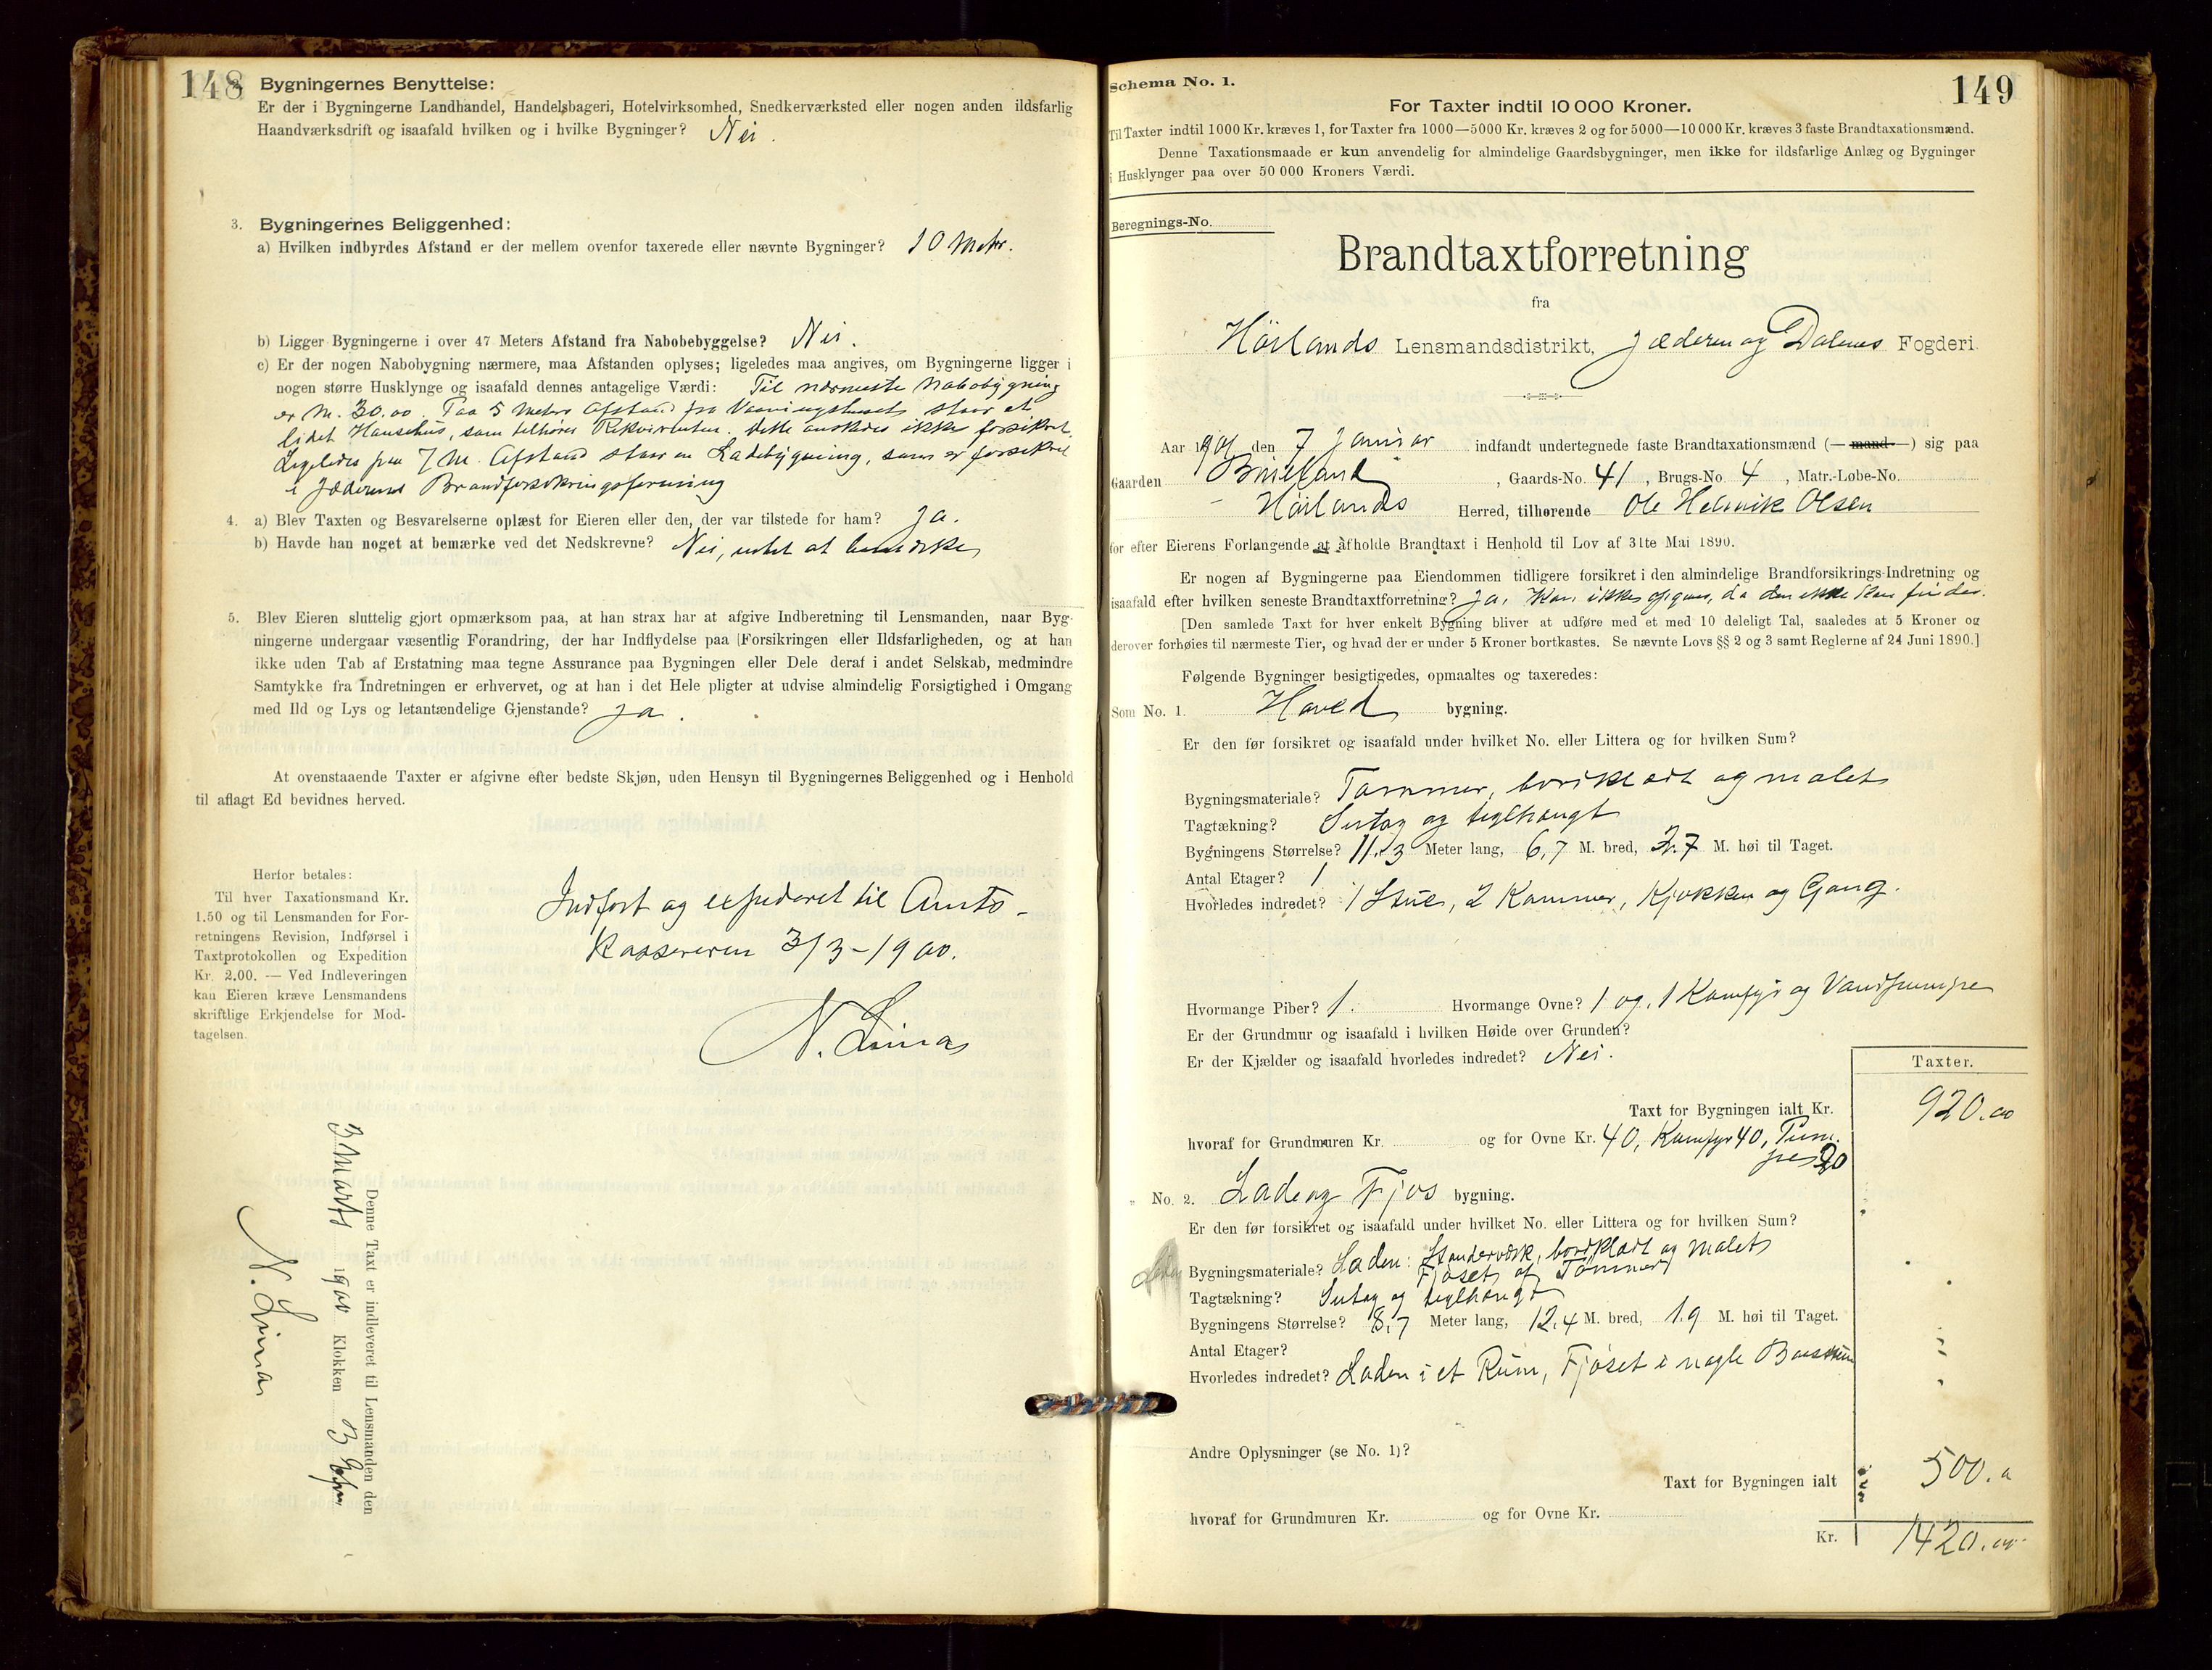 148
Bygningernes Benyttelse:
Er der i Bygningerne Landhandel, Handelsbageri, Hotelvirksomhed, Snedkerværksted eller nogen anden ildsfarlig
Haandværksdrift og isaafald hvilken og i hvilke Bygninger? Nei.
3. Bygningernes Beliggenhed:
a) Hvilken indbyrdes Afstand er der mellem ovenfor taxerede eller nævnte Bygninger? 10 Metr.
b) Ligger Bygningerne i over 47 Meters Afstand fra Nabobebyggelse? Nei.
c) Er der nogen Nabobygning nærmere, maa Afstanden oplyses; ligeledes maa angives, om Bygningerne ligger i
nogen større Husklynge og isaafald dennes antagelige Værdi: Til nærmeste Nabobygning
er M. 30.00. Paa 5 Meters Afstand fra Vaaningshuset staar et
lidet Hønsehus, som tilhører Rekvirenten. Dette ønskes ikke forsikret.
Ligeledes paa 7 M. Afstand staar en Ladebygning, som er forsikret
i Jæderens Brandforsikringsforening
4. a) Blev Taxten og Besvarelserne oplæst for Eieren eller den, der var tilstede for ham? Ja.
b) Havde han noget at bemærke ved det Nedskrevne? Nei, intet at bemærke
5. Blev Eieren sluttelig gjort opmærksom paa, at han strax har at afgive Indberetning til Lensmanden, naar Byg-
ningerne undergaar væsentlig Forandring, der har Indflydelse paa Forsikringen eller Ildsfarligheden, og at han
ikke uden Tab af Erstatning maa tegne Assurance paa Bygningen eller Dele deraf i andet Selskab, medmindre
Samtykke fra Indretningen er erhvervet, og at han i det Hele pligter at udvise almindelig Forsigtighed i Omgang
med Ild og Lys og letantændelige Gjenstande? Ja.
At ovenstaaende Taxter er afgivne efter bedste Skjøn, uden Hensyn til Bygningernes Beliggenhed og i Henhold
til aflagt Ed bevidnes herved.
Herfor betales:
Til hver Taxationsmand Kr.
1.50 og til Lensmanden for For-
retningens Revision, Indførsel i
Taxtprotokollen og Expedition
Kr. 2.00. — Ved Indleveringen
kan Eieren kræve Lensmandens
skriftlige Erkjendelse for Mod-
tagelsen.
Indført og expederet til Amts-
kassereren 3/3-1900.
N. Lima
Denne Taxt er indleveret til Lensmanden den
3 Marts 1900 Klokken 3 Efm
N. Lima
Schema No. 1.
149
For Taxter indtil 10 000 Kroner.
Til Taxter indtil 1000 Kr. kræves 1, for Taxter fra 1000—5000 Kr. kræves 2 og for 5000—10 000 Kr. kræves 3 faste Brandtaxationsmænd.
Denne Taxationsmaade er kun anvendelig for almindelige Gaardsbygninger, men ikke for ildsfarlige Anlæg og Bygninger
i Husklynger paa over 50 000 Kroners Værdi.
Beregnings-No.
Brandtaxtforretning
fra
Høilands Lensmandsdistrikt, Jæderen og Dalenes Fogderi.
Aar 1901 den 7 Januar indfandt undertegnede faste Brandtaxationsmænd (—mand—) sig paa
Gaarden Brueland, Gaards-No. 41, Brugs-No. 4, Matr.-Løbe-No.
Høilands Herred, tilhørende Ole Helmik Olsen
for efter Eierens Forlangende at afholde Brandtaxt i Henhold til Lov af 31te Mai 1890.
Er nogen af Bygningerne paa Eiendommen tidligere forsikret i den almindelige Brandforsikrings-Indretning og
isaafald efter hvilken seneste Brandtaxtforretning? Ja, Kan ikke opgives, da den ikke kan findes.
[Den samlede Taxt for hver enkelt Bygning bliver at udføre med et med 10 deleligt Tal, saaledes at 5 Kroner og
derover forhøies til nærmeste Tier, og hvad der er under 5 Kroner bortkastes. Se nævnte Lovs §§ 2 og 3 samt Reglerne af 24 Juni 1890.]
Følgende Bygninger besigtigedes, opmaaltes og taxeredes:
Som No. 1. Hoved bygning.
Er den før forsikret og isaafald under hvilket No. eller Littera og for hvilken Sum?
Bygningsmateriale? Tømmer, bordklædt og malet
Tagtækning? Sutag og teglhængt
Bygningens Størrelse? 11.3 Meter lang, 6,7 M. bred, 2.7 M. høi til Taget.
Antal Etager? 1
Hvorledes indredet? 1 Stue, 2 Kammer, Kjøkken og Gang.
Hvormange Piber? 1. Hvormange Ovne? 1 og 1 Komfyr og Vandpumpe
Er der Grundmur og isaafald i hvilken Høide over Grunden?
Er der Kjælder og isaafald hvorledes indredet? Nei.
Taxter.
Taxt for Bygningen ialt Kr. 920.00
hvoraf for Grundmuren Kr. og for Ovne Kr. 40, Komfyr 40, Pum-
pe 20
" No. 2. Lade og Fjøs bygning.
Er den før forsikret og isaafald under hvilket No. eller Littera og for hvilken Sum?
Bygningsmateriale? Laden: Standerværk, bordklædt og malet
Fjøset af Tømmer
Tagtækning? Sutag og teglhængt
Bygningens Størrelse? 8,7 Meter lang, 12.4 M. bred, 1.9 M. høi til Taget.
Antal Etager?
Hvorledes indredet? Laden i et Rum, Fjøset i nogle Baasrum
Andre Oplysninger (se No. 1)?
Taxt for Bygningen ialt 500.
hvoraf for Grundmuren Kr. og for Ovne Kr.
Kr. 1420.00